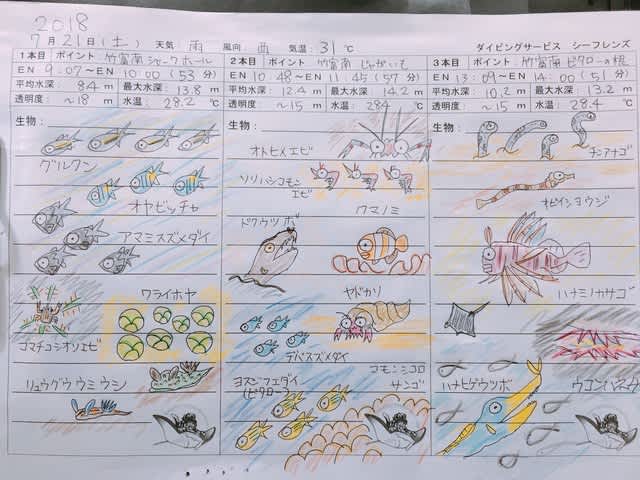 2018
7月21日(土) 天気 雨 風向 西 気温: 31 ℃ ダイビングサービス シーフレンズ
1本目 ポイント 竹富南シャークホール
EN 9:07〜EN 10:00 (53分)
平均水深: 8.4 m 最大水深: 13.8 m
透明度: 〜18 m 水温: 28.2 ℃
生物:
グルクン
オヤビッチャ
アマミスズメダイ
ワライホヤ
ゴマチョウシオリエビ
リュウグウウミウシ
2本目 ポイント 竹富南じゃがいも
EN 10:48〜EN 11:45 (57分)
平均水深: 12.4 m 最大水深: 14.2 m
透明度: 〜15 m 水温: 28.4 ℃
生物:
オトヒメエビ
ソリハシコモン
エビ
クマノミ
ドクウツボ
ヤドカリ
デバスズメダイ
コモンシコロ
サンゴ
ヨスジフエダイ
(ピタロー)
3本目 ポイント 竹富南ピタローの根
EN 13:09〜EN 14:00 (51分)
平均水深: 10.2 m 最大水深: 13.2 m
透明度: 〜15 m 水温: 28.4 ℃
生物:
チンアナゴ
オビイシヨウジ
ハナミノカサゴ
ハナヒゲウツボ
ウコンハネガイ